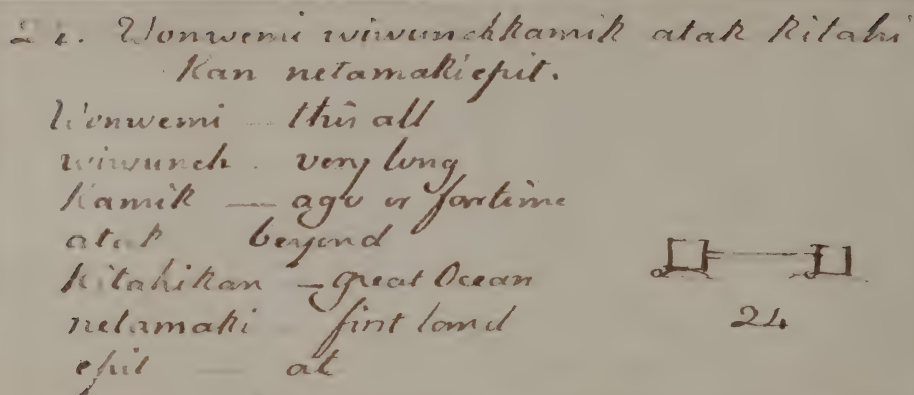 24. Wonwemi wiwunchkamik atak kitahi
kan netamakiepit.
Wonwemi - this all
wiwunch . very long
kamik — ago or foretime
atak beyond
kitahikan - great Ocean
netamaki first land
epit — at
24